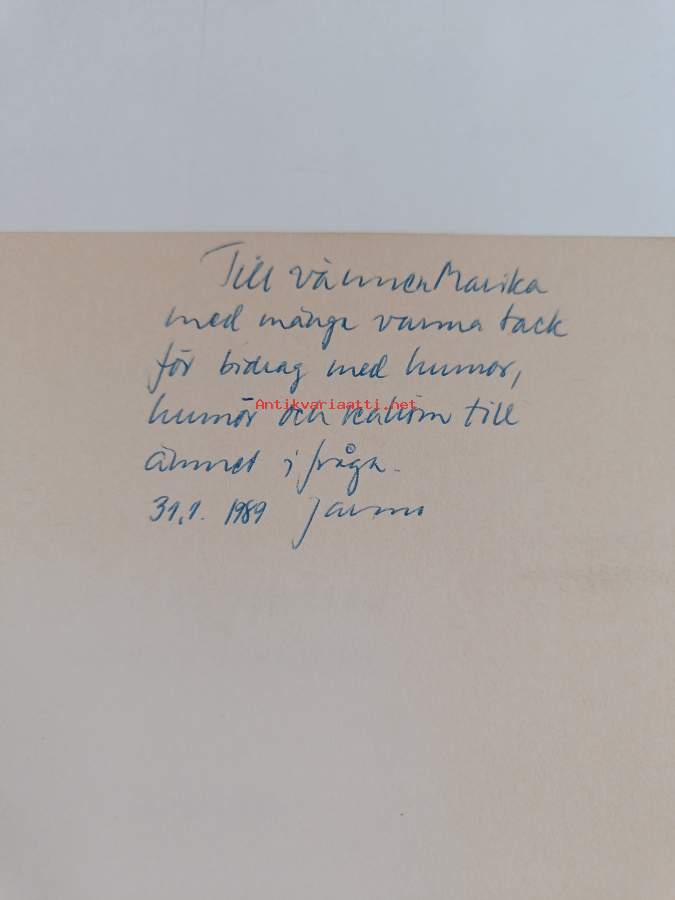 Till vännen Marika
med många varma tack
för bidrag med humor,
humör och realism till
ämnet i fråga.
31.1. 1989 Jarmo
Antikvariaatti.net